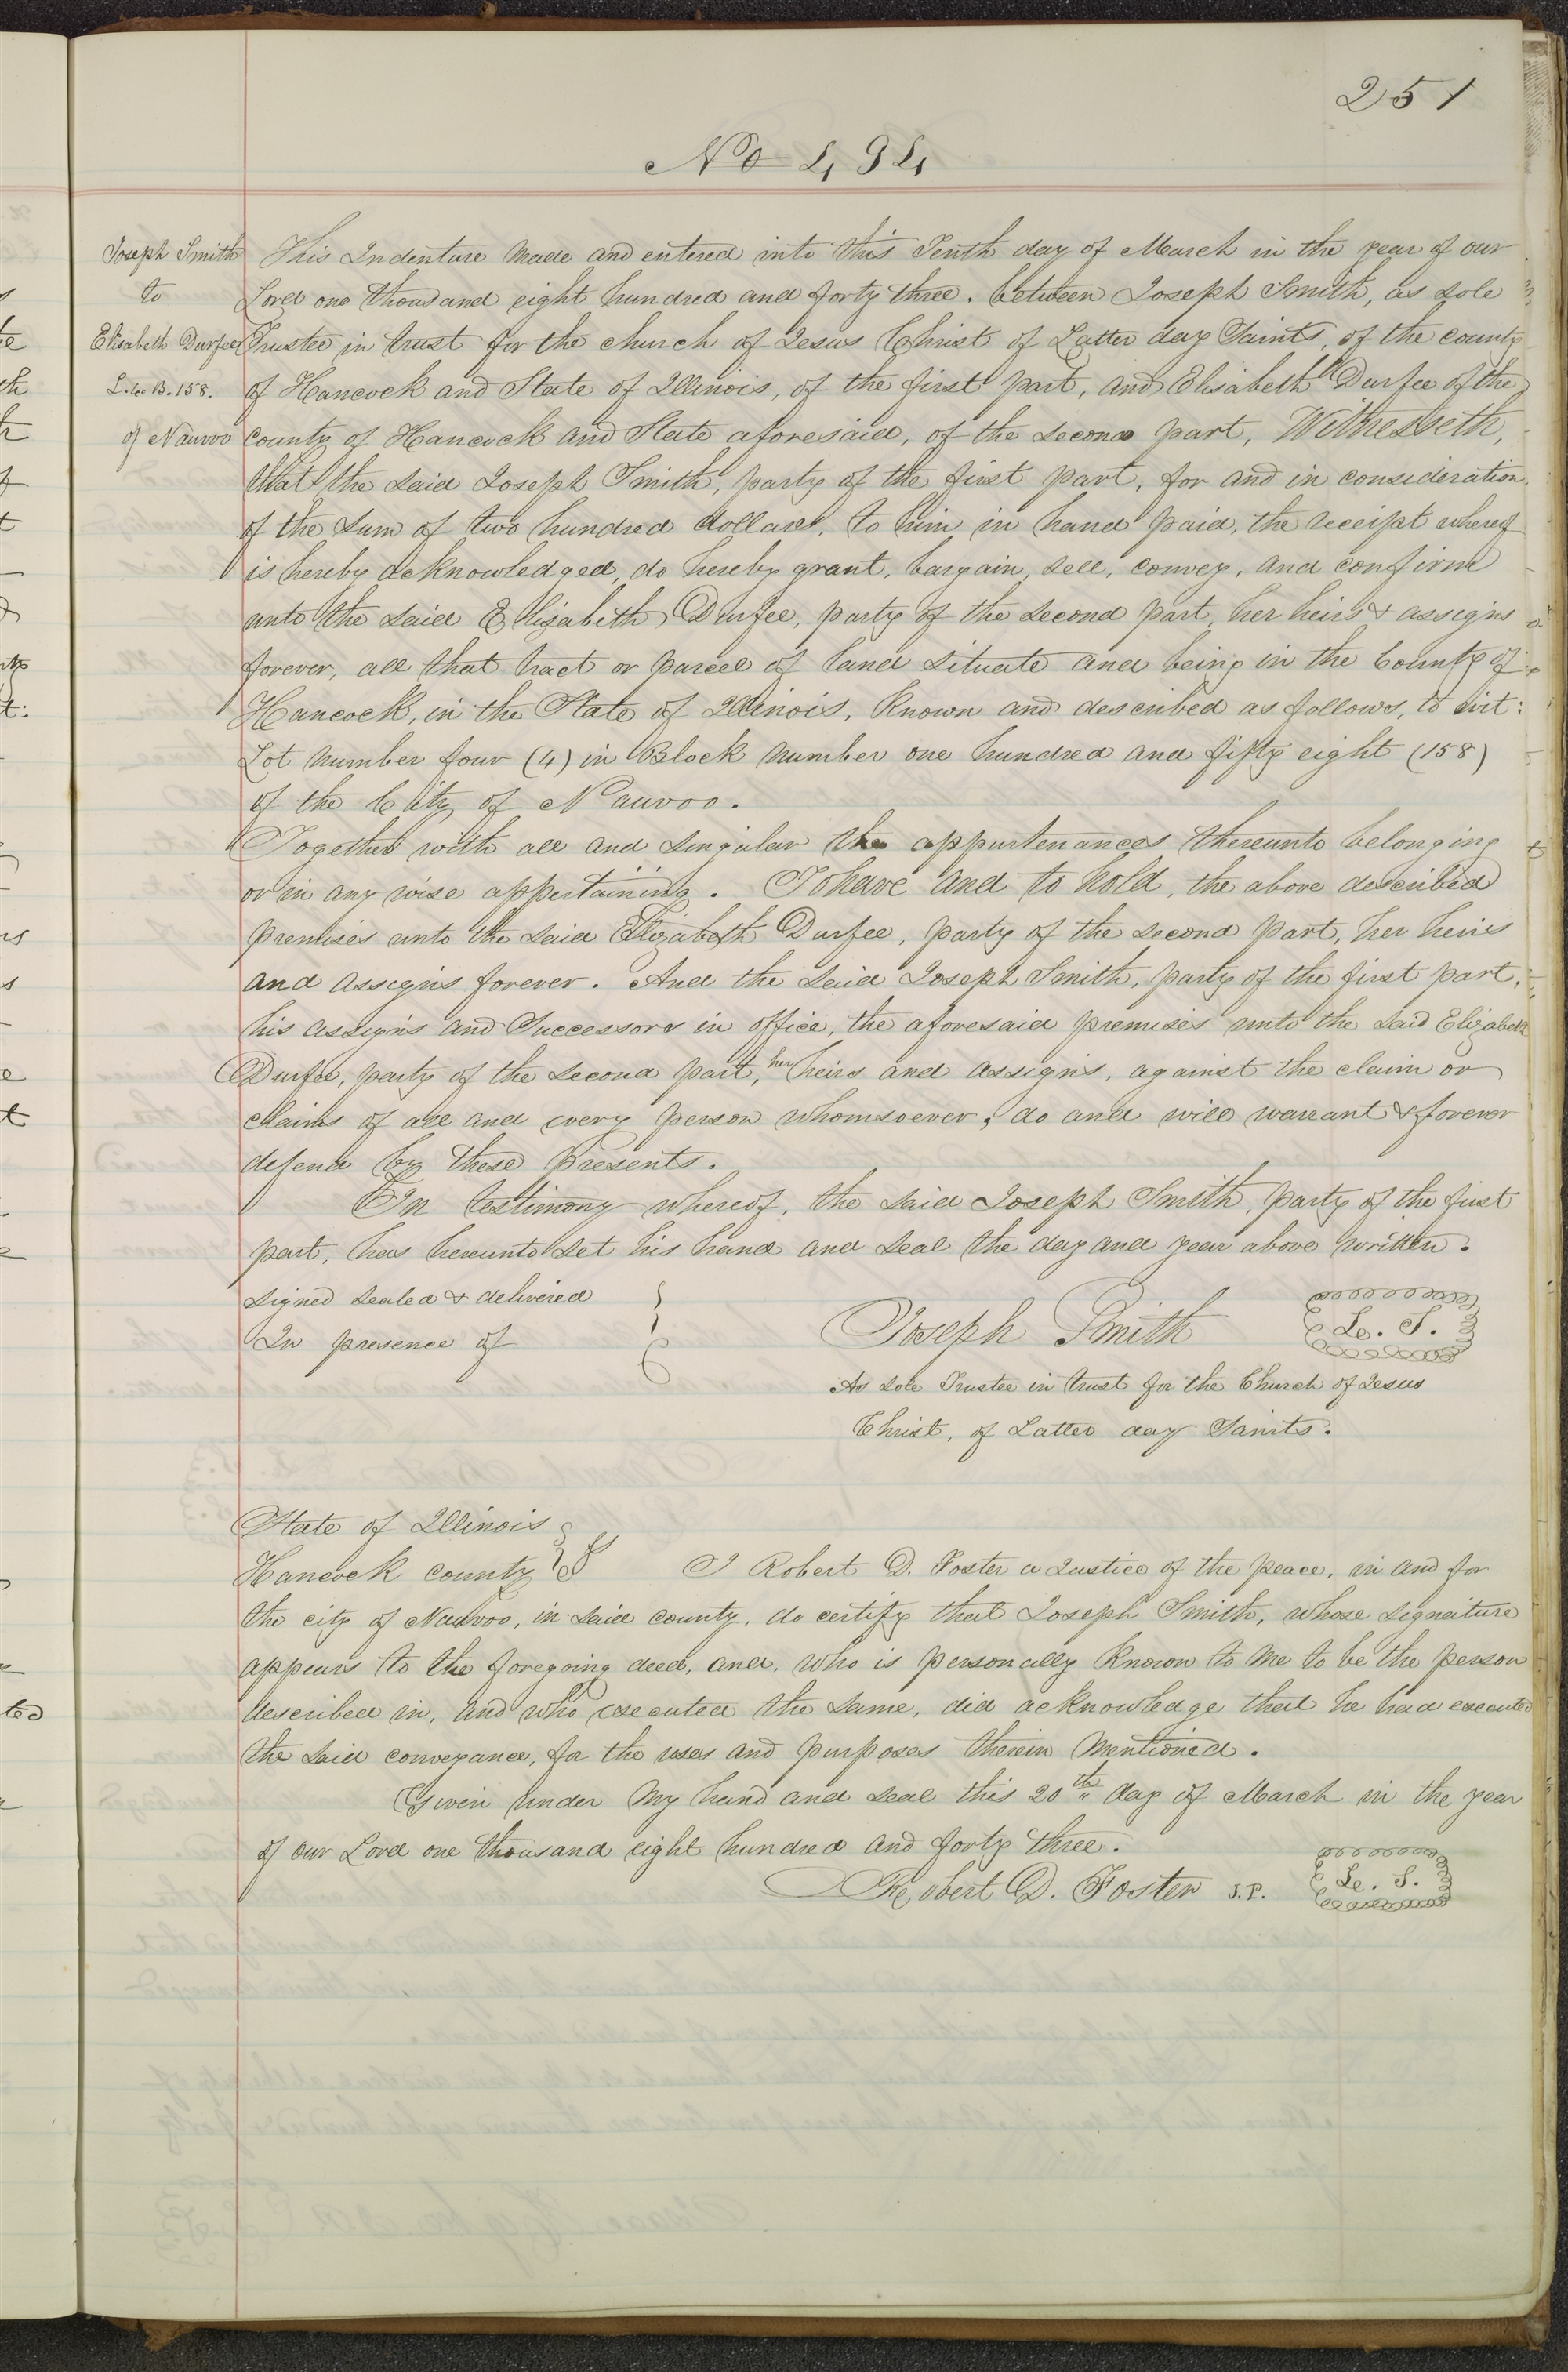 251
No 494
Joseph Smith
to
Elisabeth Durfee
L. 4. B. 158.
of Nauvoo
This Indenture made and entered into this Tenth day of March in the year of our
Lord one thousand eight hundred and forty three. between Joseph Smith, as sole
Trustee in trust for the church of Jesus Christ of Latter day Saints, of the county
of Hancock and State of Illinois, of the first part, and Elisabeth Durfee of the
county of Hancock and State aforesaid, of the second part, Witnesseth,
that the said Joseph Smith, party of the first part, for and in consideration
of the sum of two hundred dollars, to him in hand paid, the receipt whereof
is hereby acknowledged, do hereby grant, bargain, sell, convey, and confirm
unto the said Elizabeth Durfee, party of the second part, her heirs & assigns
forever, all that tract or parcel of land situate and being in the County of
Hancock, in the State of Illinois, known and described as follows, to wit:
Lot number four (4) in Block number one hundred and fifty eight (158)
of the City of Nauvoo.
Together with all and singular the appurtenances thereunto belonging
or in any wise appertaining. To have and to hold, the above described
premises unto the said Elizabeth Durfee, party of the second part, her heirs
and assigns forever. And the said Joseph Smith, party of the first part,
his assigns and Successors in office, the aforesaid premises unto the said Elizabeth
Durfee, party of the second part, her heirs and assigns, against the claim or
claims of all and every person whomsoever, do and will warrant & forever
defend by these presents.
In testimony whereof, the said Joseph Smith, party of the first
part, has hereunto set his hand and seal the day and year above written.
signed sealed & delivered
In presence of
Joseph Smith L. S.
As sole Trustee in trust for the Church of Jesus
Christ, of Latter day Saints.
State of Illinois
Hancock county I Robert D. Foster a Justice of the peace, in and for
the city of Nauvoo, in said county, do certify that Joseph Smith, whose signature
appears to the foregoing deed, and, who is personally known to me to be the person
described in, and who executed the same, did acknowledge that he had executed
the said conveyance, for the uses and purposes therein mentioned.
Given under my hand and seal this 20th day of March in the year
of our Lord one thousand eight hundred and forty three.
Robert D. Foster J.P. L. S.